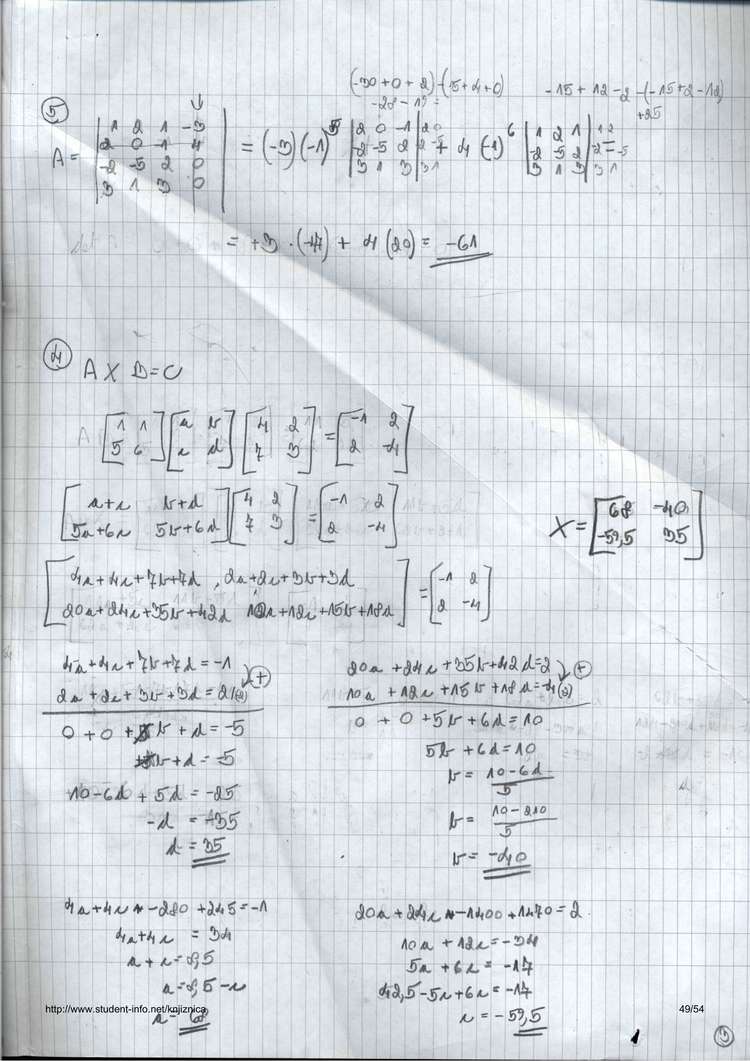 (-30+0+2)-(5+4+0)
-28-19=
-15+12-2-(-15+2-12)
+25
5
A = | 1 2 1 -3 |
| 2 0 -1 4 |
| -2 -5 2 0 |
| 3 1 3 0 |
= (-3)(-1)^5 | 2 0 -1 | 2 0
| -2 -5 2 | -2 -5
| 3 1 3 | 3 1
+ 4(-1)^6 | 1 2 1 | 1 2
| -2 -5 2 | -2 -5
| 3 1 3 | 3 1
=
= +3 · (-47) + 4(20) = -61
4
A X B = C
[1 1; 5 6] [a b; c d] [4 2; 7 3] = [-1 2; 2 -4]
[a+c b+d; 5a+6c 5b+6d] [4 2; 7 3] = [-1 2; 2 -4]
X = [68 -40; -59,5 35]
[4a+4c+7b+7d, 2a+2c+3b+3d; 20a+24c+35b+42d 10a+12c+15b+18d] = [-1 2; 2 -4]
4a+4c+7b+7d = -1
2a+2c+3b+3d = 2 /(2)
+
0 + 0 + b + d = -5
b + d = -5
10-6d + 5d = -25
-d = -35
d = 35
20a+24c+35b+42d=2
10a+12c+15b+18d=-4 (2)
+
0 + 0 + 5b + 6d = 10
5b + 6d = 10
b = 10-6d / 5
b = 10-210 / 5
b = -40
4a+4c -280 +245 = -1
4a+4c = 34
a + c = 8,5
a = 8,5 - c
a = 68
20a+24c -1400 +1470 = 2
10a + 12c = -34
5a + 6c = -17
42,5-5c+6c = -17
c = -59,5
http://www.student-info.net/knjiznica
49/54
3